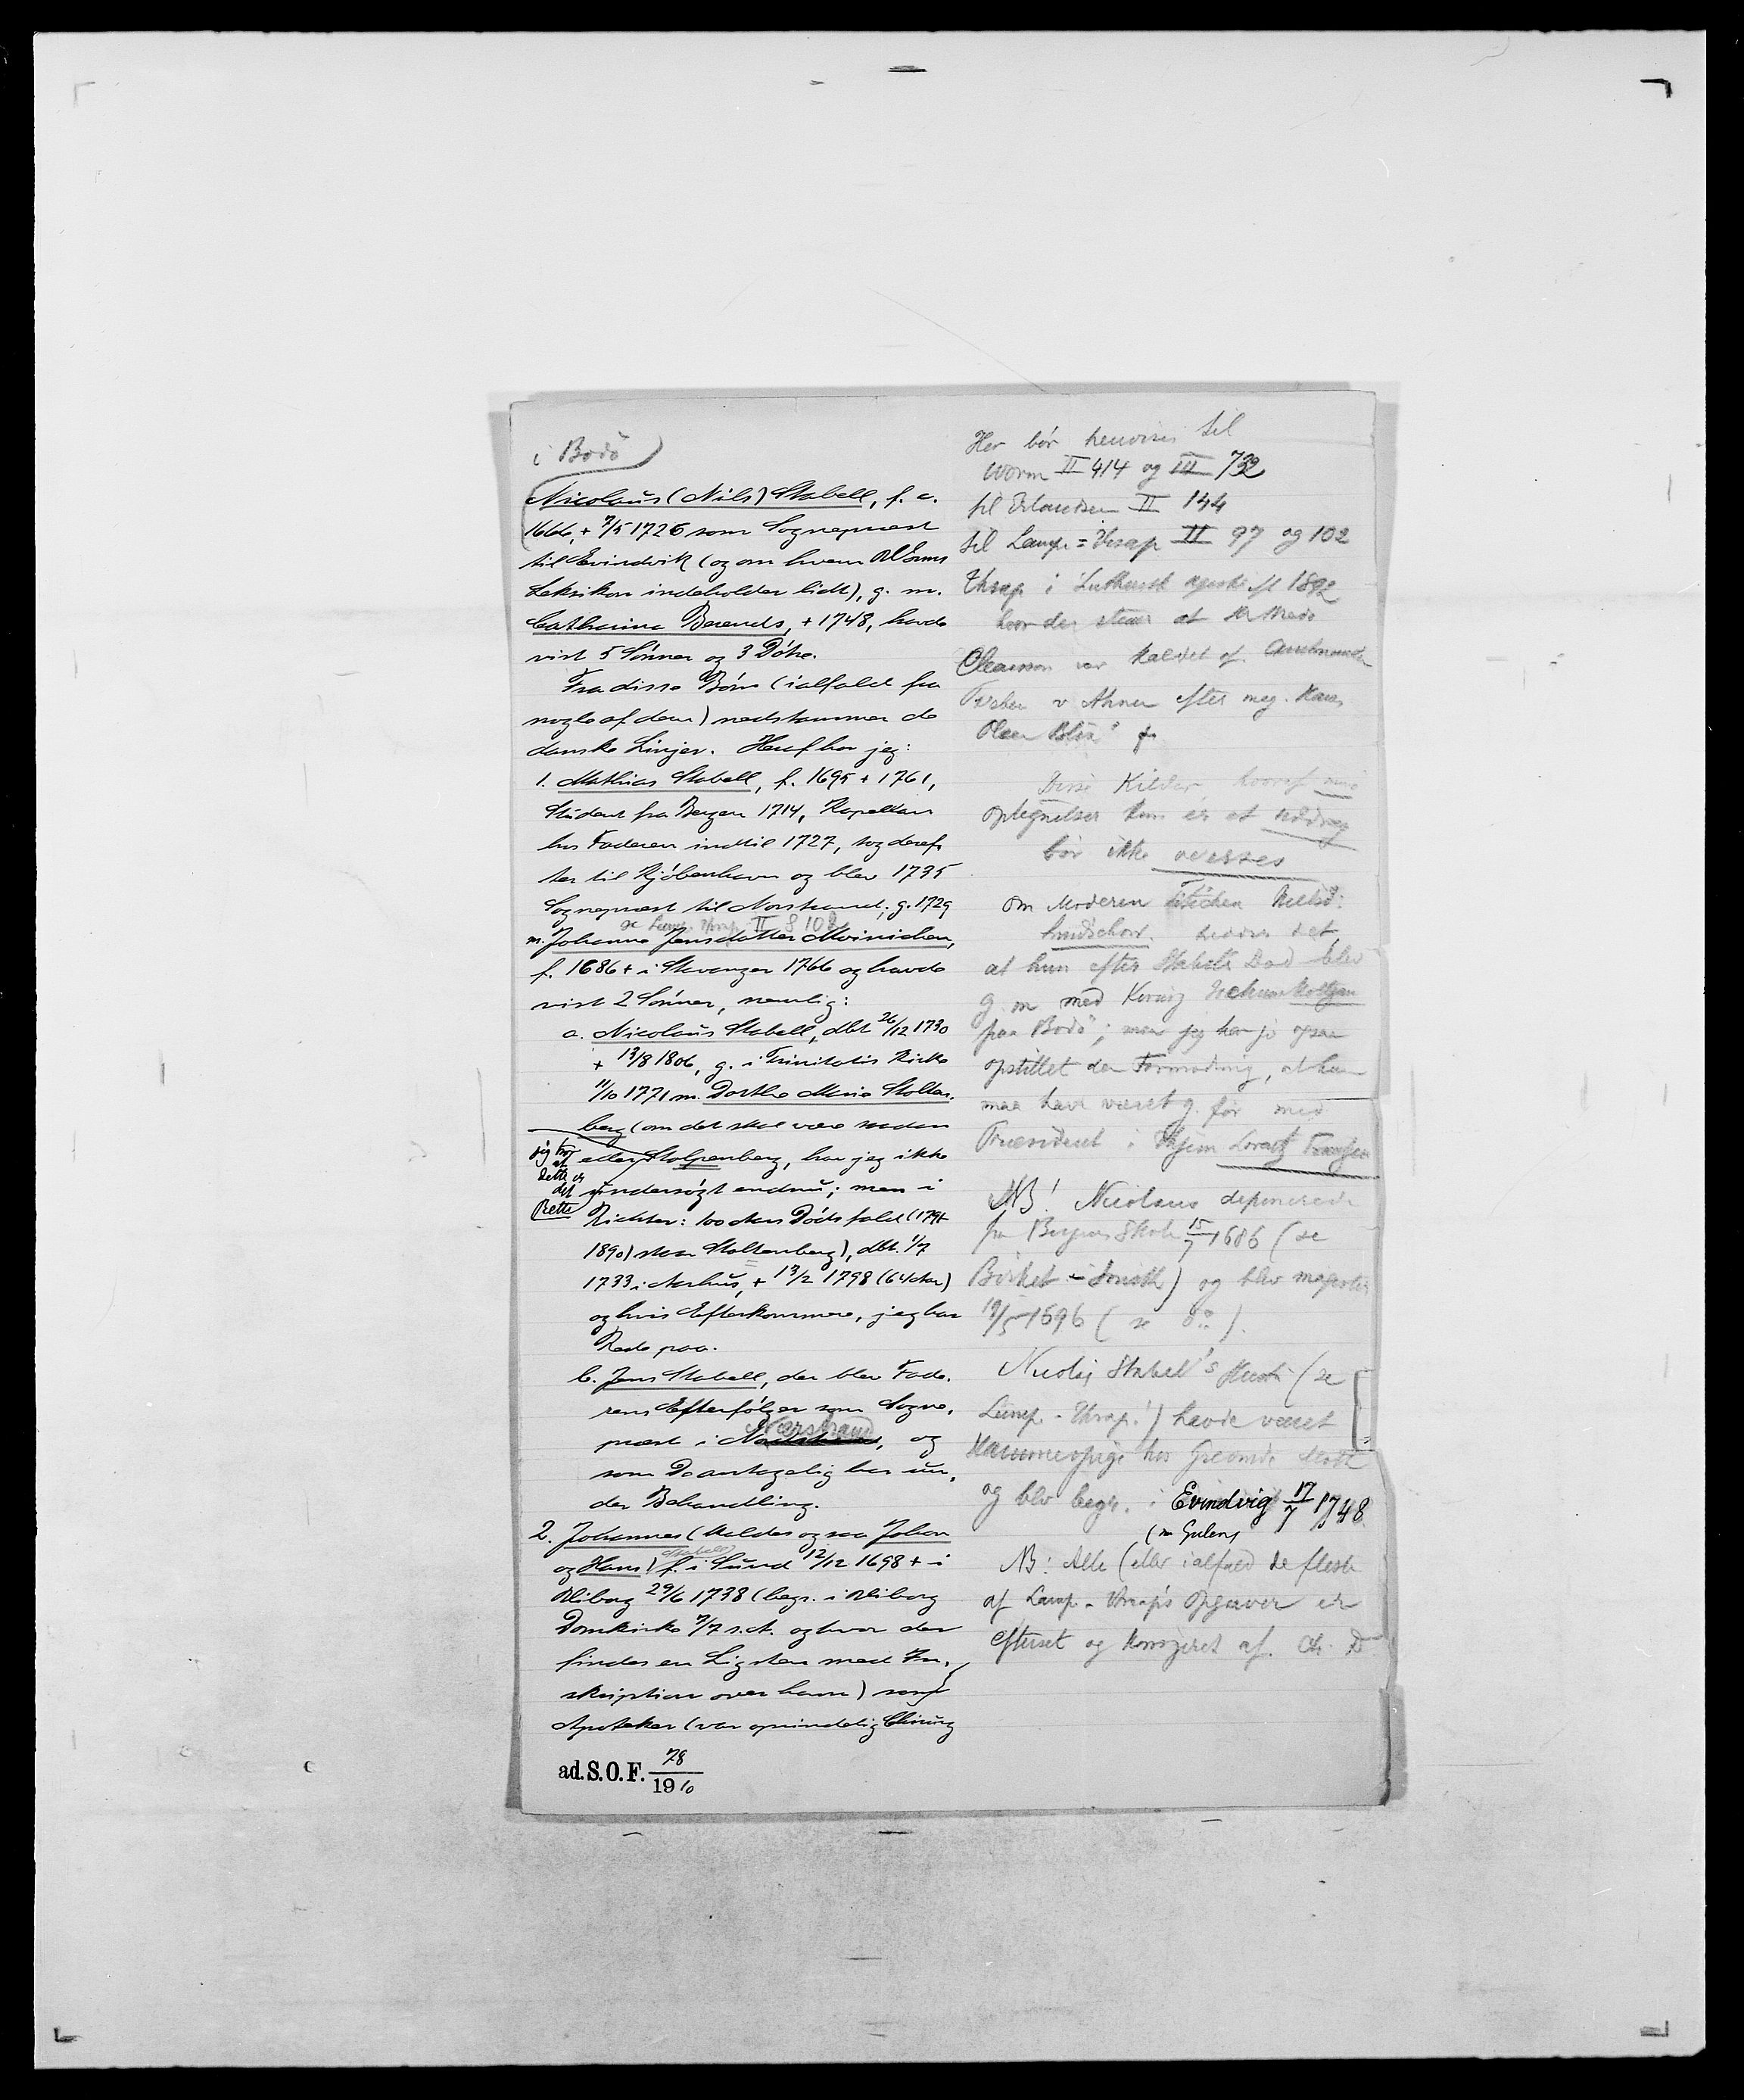 i Bodö
Nicolaus (Nils) Stabell, f. c.
1666, + 7/5 1726 som Sognepræst
til Evindvik (og om hvem Worms
Leksikon indeholder lidt), g. m.
Catharina Berends, + 1748, havde
vist 5 Sönner og 3 Döttre.
Fra disse Börn (ialfald fra
nogle af dem) nedstammer de
danske Linjer. Heraf har jeg:
1. Mathias Stabell, f. 1695 + 1761,
Student fra Bergen 1714, Kapellan
hos Faderen indtil 1727, tog deref-
ter til Kjöbenhavn og blev 1735
Sognepræst til Norstrand; g. 1729
se Lamp. Thrap II S 102
m. Johanne Jensdatter Moinichen,
f. 1686 + i Stavanger 1766 og havde
vist 2 Sönner, nemlig:
a. Nicolaus Stabell, dbt 26/12 1730
+ 13/8 1806, g. i Trinitatis Kirke
11/10 1771 m. Dorthe Marie Stolten-
berg (om det skal være saadan
eller Stolpenberg, har jeg ikke
jeg tror at dette er det Rette
undersögt endnu; men i
Richter: 100 Aars Dödsfald (1791-
1890) staar Stoltenberg), dbt. 1/7
1733 i Aarhus, + 13/2 1798 (64 Aar)
og hvis Efterkommere, jeg har
Rede paa.
b. Jens Stabell, der blev Fade-
rens Efterfölger som Sogne-
Nærstrand
præst i Nordstrand, og
som De antagelig har un-
der Behandling.
2. Johannes (kaldes ogsaa Johan
og Hans) Stabell f. i Sund 12/12 1698 + i
Viborg 29/6 1738 (begr. i Viborg
Domkirke 7/7 s. A. og hvor der
findes en Ligsten med In-
skription over ham) som
Apoteker (var oprindelig Chirurg
ad. S. O. F. 78/1910
Her bör henvises til
Worm II 414 og III 732
til Erlandsen II 144
til Lamp = Thrap II 97 og 102
Thrap i Luthersk 1892
hvor der staar at
var kaldet af Amtmanden
v Ahnen efter mag. Hans
Disse Kilder, hvoraf mine
optegnelser kun er et uddrag
bör ikke oversees
Om Moderen
hedder det,
at hun efter Stabells Död blev
g. m med
paa Bodö"; men jeg har jo ogsaa
opstillet den Formodning, at hun
maa have været g. för med
Præsident i Thjem Lorentz
NB! Nicolaus deponerede
fra Bergens Skole 15/7 1686 (se
Birket = Smith) og blev magister
19/5 1696 (se do).
Nicolaj Stabell's Hustru (se
Lamp. - Thrap.) havde været
Kammerpige hos
og blev begr. i Evindvig 17/7 1748.
(nu Gulen)
NB: Alle (eller ialfald de fleste
af Lamp - Thrap's Opgaver er
efterset og korrigeret af. Ch. D